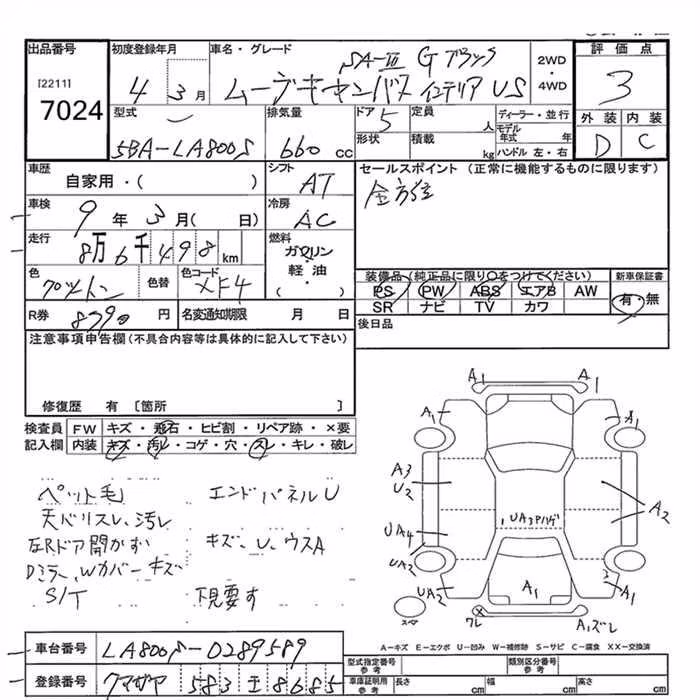 出品番号
[2211]
7024
初度登録年月
4年 3月
車名・グレード
SA-Ⅲ Gブラック
ムーブキャンバス インテリア VS
2WD
・
4WD
評価点
3
外装 内装
D C
型式
5BA-LA800S
排気量
660 cc
ドア 5
形状
定員 人
積載 kg
ディーラー・並行
モデル年式 年
ハンドル 左・右
車歴
自家用・( )
シフト
AT
セールスポイント (正常に機能するものに限ります)
車検
9年 3月( 日)
冷房
AC
走行
8万6千498km
燃料
ガソリン
・
軽油
( )
色
色替
色コード
装備品(純正品に限り○をつけてください)
新車保証書
PS PW ABS エアB AW
有・無
SR ナビ TV カワ
R券 8790円
名変通知期限 月 日
後日品
注意事項申告欄(不具合内容等は具体的に記入して下さい)
修復歴 有 [箇所 ]
検査員 FW キズ・飛石・ヒビ割・リペア跡・×要
記入欄 内装 キズ・汚レ・コゲ・穴・スレ・キレ・破レ
ペット毛 エンドパネルU
天バリスレ、汚レ
左Rドア開かず キズ、U、ウスA
Dミラー、Wカバーキズ
S/T 下見要す
A1 A1
A1 A1
A3
U2
A2
UA3アハゲ
UA4
UA2
UA2
A1
A1
スペア
ワレ
A1ズレ
A-キズ E-エクボ U-凹み W-補修跡 S-サビ C-腐食 XX-交換済
車台番号 LA800S-0289589
登録番号 583 エ 8685
型式指定番号 参考
類別区分番号 参考
車庫証明用 参考 長さ cm 幅 cm 高さ cm